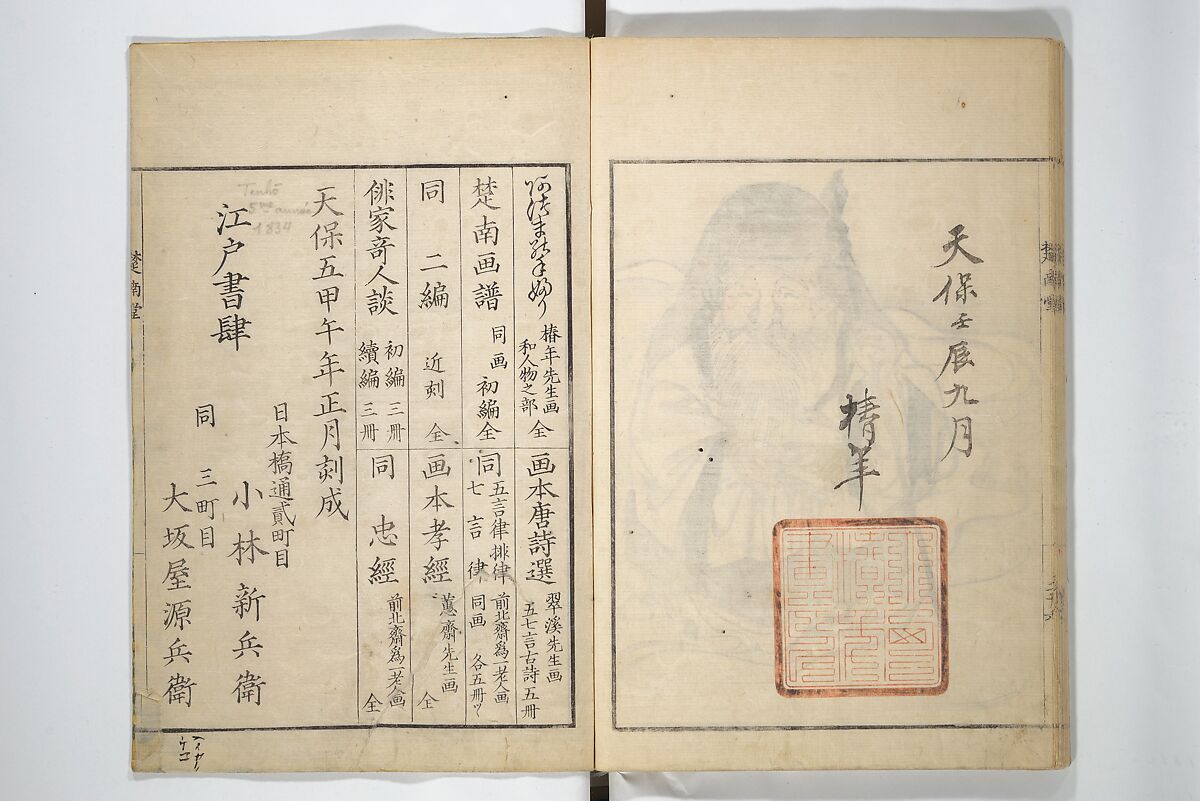 天保壬辰九月
椿年
楚南画譜 同画 初編 全
椿年先生画
和人物之部 全
同 二編 近刻 全
俳家奇人談 初編 三冊
續編 三冊
画本唐詩選 翠溪先生画
五七言古詩 五冊
同 五言律排律 前北斎為一老人画
七言律 同画 各五冊ツヽ
画本孝經 蕙斎先生画 全
同 忠經 前北斎為一老人画 全
天保五甲午年正月刻成
Tenhō
5me année
1834
江戸書肆
日本橋通貳町目
小林新兵衛
同 三町目
大坂屋源兵衛
楚南堂